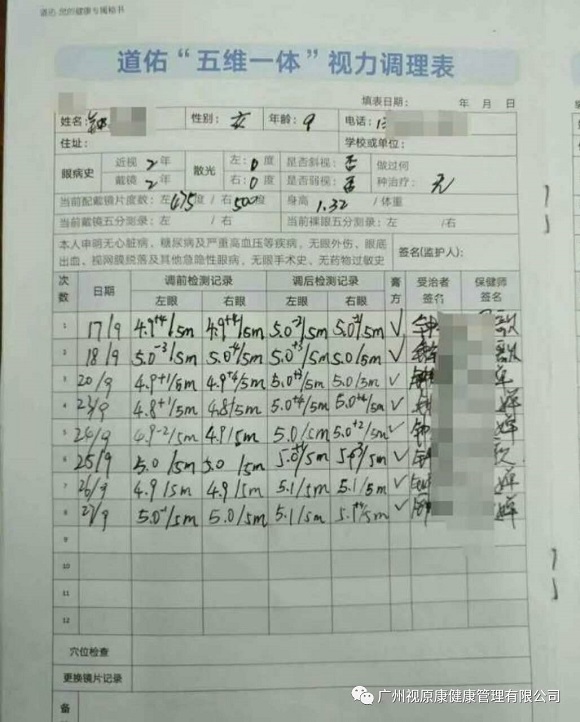 道佑·您的健康专属秘书
道佑“五维一体”视力调理表
填表日期： 年 月 日
姓名： 性别：女 年龄：9 电话：13
住址： 学校或单位：
眼病史 近视 2年 散光 左：0度 是否斜视：否 做过何
戴镜 2年 右：0度 是否弱视：否 种治疗：无
当前配戴镜片度数：左475度 / 右500度 身高 1.32 / 体重
当前戴镜五分测录：左 /右 当前裸眼五分测录：左 /右
本人申明无心脏病，糖尿病及严重高血压等疾病，无眼外伤、眼底
出血、视网膜脱落及其他急隐性眼病，无眼手术史、无药物过敏史 签名(监护人)：
次数 日期 调前检测记录 调后检测记录 膏方 受治者签名 保健师签名
左眼 右眼 左眼 右眼
1 17/9 4.9⁺⁴/5m 4.9⁺⁴/5m 5.0⁻²/5m 5.0 /5m ✓ 钟
2 18/9 5.0⁻³/5m 5.0⁻⁴/5m 5.0⁺³/5m 5.0/5m ✓ 钟
3 20/9 4.9⁺¹/5m 4.9⁺⁴/5m 5.0⁺³/5m 5.0/5m ✓ 钟
4 23/9 4.8⁺¹/5m 4.8/5m 5.0⁺⁴/5m 5.0⁺⁴/5m ✓ 钟
5 24/9 4.9⁻²/5m 4.9/5m 5.0/5m 5.0⁺²/5m ✓ 钟
6 25/9 5.0 /5m 5.0 /5m 5.0⁺⁴/5m 5.0⁺³/5m ✓ 钟
7 26/9 4.9/5m 4.9/5m 5.1/5m 5.1/5m ✓ 钟
8 27/9 5.0⁻¹/5m 5.0/5m 5.1/5m 5.1⁺⁴/5m ✓ 钟
9
10
11
12
穴位检查
更换镜片记录
备
广州视原康健康管理有限公司